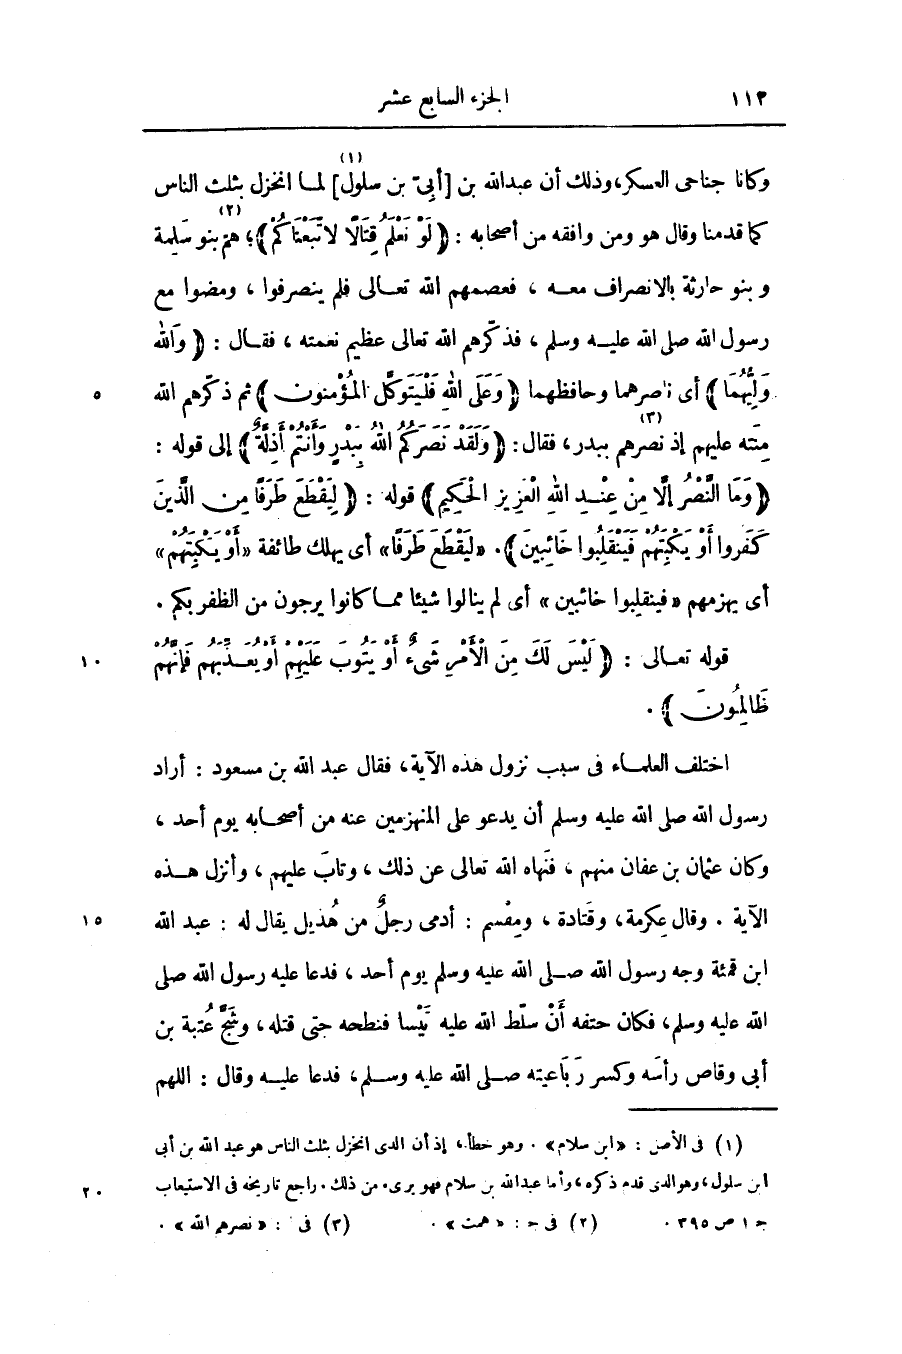 ١١٢
الجزء السابع عشر
وكانا جناحى العسكر، وذلك أن عبدالله بن [أبيّ بن سلول] (١) لما انخزل بثلث الناس
كما قدمنا وقال هو ومن وافقه من أصحابه : ﴿ لَوْ نَعْلَمُ قِتَالًا لَاتَّبَعْنَاكُمْ ﴾؛ همّ (٢) بنو سَلِمة
و بنو حارثة بالانصراف معــه ، فعصمهم الله تعـالى فلم ينصرفوا ، ومضوا مع
رسول الله صلى الله عليــه وسلم ، فذكّرهم الله تعالى عظيم نعمته ، فقـال : ﴿ وَاللهُ
٥
وَلِيُّهُمَا ﴾ أى ناصرهما وحافظهما ﴿ وَعَلَى اللهِ فَلْيَتَوَكَّلِ الْمُؤْمنون ﴾ ثم ذكّرهم الله
مِنّته عليهم إذ نصرهم (٣) ببدر، فقال: ﴿ وَلَقَدْ نَصَرَكُمُ اللهُ بِبَدْرٍ وَأَنْتُمْ أَذِلَّةٌ ﴾ إلى قوله :
﴿ وَمَا النَّصْرُ إلَّا مِنْ عِنْــدِ اللهِ الْعَزِيزِ الْحَكِيمِ ﴾ قوله : ﴿ لِيَقْطَعَ طَرَفًا مِن الَّذِينَ
كَفَروا أَوْ يَكْبِتَهُمْ فَيَنْقَلِبُوا خَائِبِينَ ﴾. «لِيَقْطَعَ طَرَفًا» أى يهلك طائفة «أَوْ يَكْبِتَهُمْ»
أى يهزمهم «فينقلِبوا خائبين» أى لم ينالوا شيئا مما كانوا يرجون من الظفر بكم .
١٠
قوله تعـالى : ﴿ لَيْسَ لَكَ مِنَ الْأَمْرِ شَىْءٌ أَوْ يَتُوبَ عَلَيْهِمْ أَوْ يُعَــذِّبَهُم فَإِنَّهُمْ
ظَالِمُونَ ﴾ .
اختلف العلمــاء فى سبب نزول هذه الآية، فقال عبد الله بن مسعود : أراد
رسول الله صلى الله عليه وسلم أن يدعو على المنهزمين عنه من أصحــابه يوم أحد ،
وكان عثمان بن عفان منهم ، فنَهاه الله تعالى عن ذلك ، وتابَ عليهم ، وأنزل هــذه
١٥
الآية . وقال عِكرمة، وقَتادة ، ومِقْسم : أدمى رجلٌ من هُذيل يقال له : عبد الله
ابن قمئة وجه رسول الله صــلى الله عليه وسلم يوم أحد ، فدعا عليه رسول الله صلى
الله عليه وسلم، فكان حتفه أَنْ سلّط الله عليه تَيْسا فنطحه حتى قتله، وشَجَّ عُتبة بن
أبى وقاص رأسَه وكسر رَبَاعيته صــلى الله عليه وســلم، فدعا عليــه وقال : اللهم
(١) فى الأصل : «ابن سلام» . وهو خطأ، إذ أن الذى انخزل بثلث الناس هو عبد الله بن أبى
٢٠
ابن سلول، وهو الذى قدم ذكره، وأما عبدالله بن سلام فهو برىء من ذلك . راجع تاريخه فى الاستيعاب
جـ ١ ص ٣٩٥ . (٢) فى جـ : «همت» . (٣) فى : «نصرهم الله» .